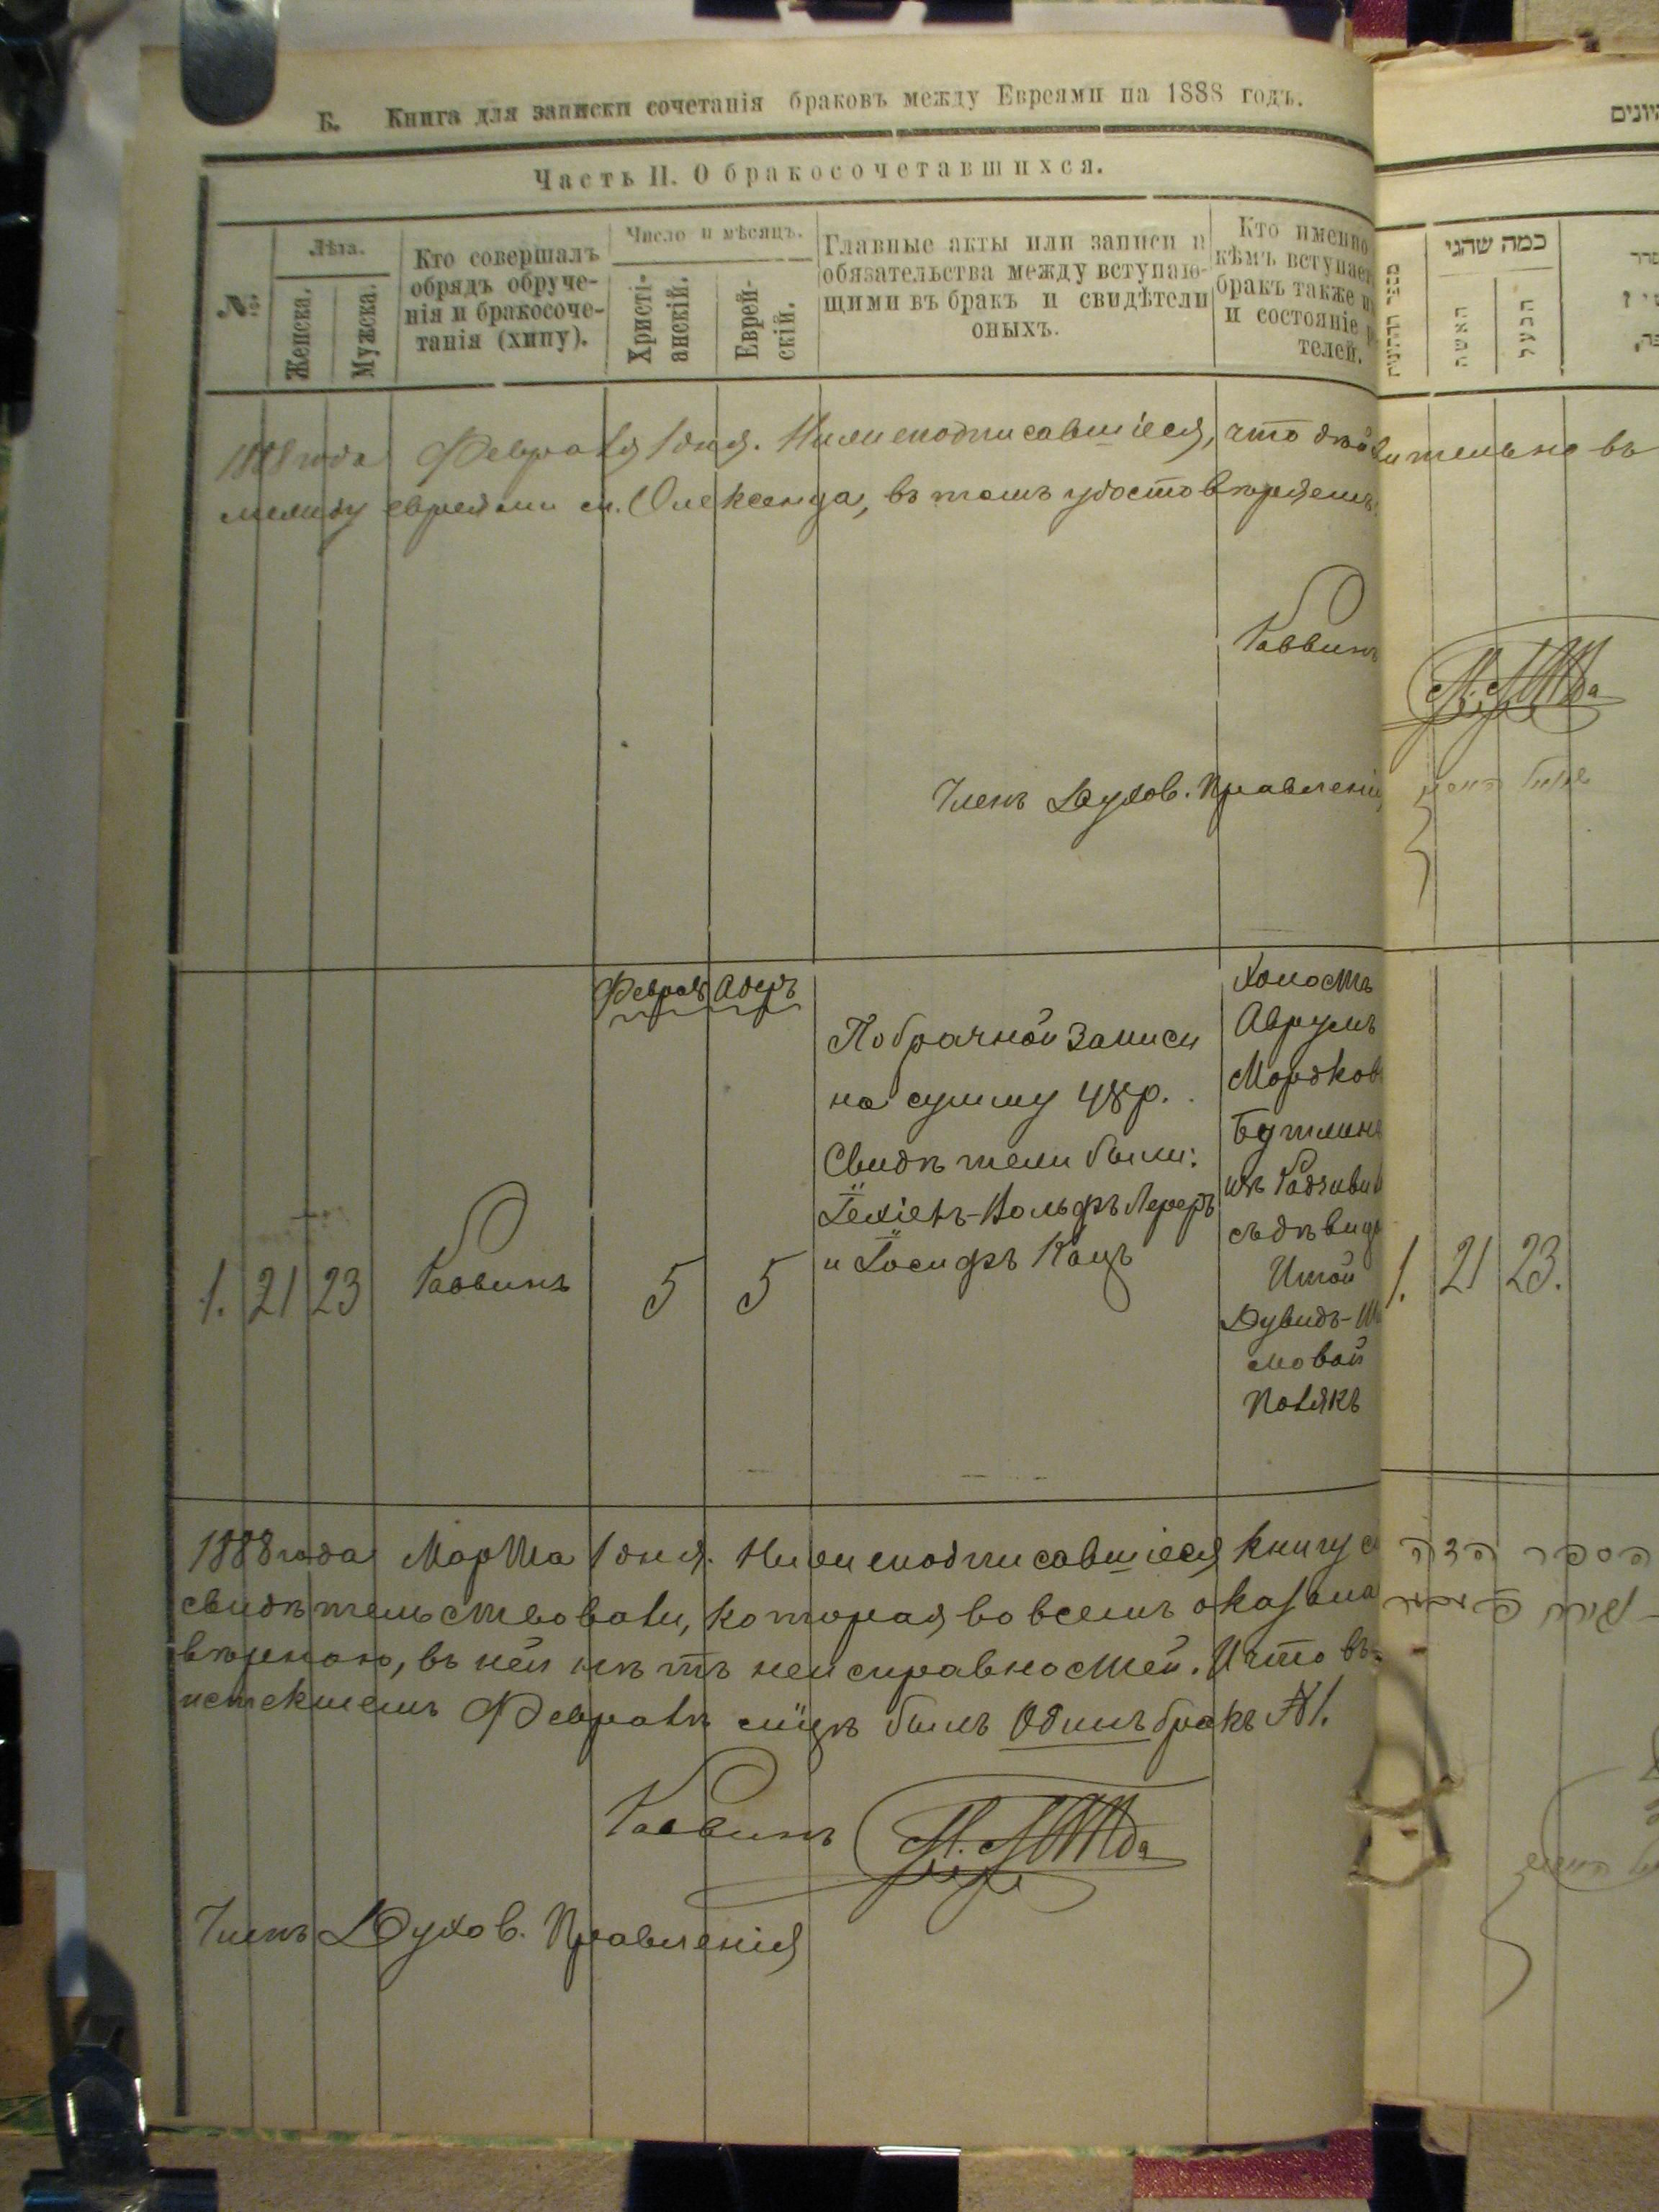 Б. Книга для записки сочетанія браковъ между Евреями на 1888 годъ.
Часть II. О бракосочетавшихся.
№
Лѣта.
Женска.
Мужска.
Кто совершалъ
обрядъ обруче-
нія и бракосоче-
танія (хипу).
Число и мѣсяцъ.
Христі-
анскій.
Еврей-
скій.
Главные акты или записи и
обязательства между вступаю-
щими въ бракъ и свидѣтели
оныхъ.
Кто именно
кѣмъ вступает
бракъ также и
и состояніе р
телей.
1888 года Февраля 1 дня. Нижеподписавшіеся, что
между евреями м. Олексенца, въ томъ удостовѣряемъ.
Раввинъ
Членъ Духов. Правленія
Февраль Адеръ
1. 21 23 Раввинъ 5 5
По брачной записи
на сумму 48 р.
Свидѣтели были:
Іехіель-Вольфъ Лереръ
и Іосифъ Кацъ
Холостъ
Аврумъ
Мордков
Бутлинъ
изъ Радзивил
съ дѣвице
Итой
Дувидъ-Ш
мовой
Полякъ
1888 года Марта 1 дня. Нижеподписавшіеся книгу с
свидѣтельствовали, которая во всемъ оказана
вѣрною, въ ней нѣтъ неисправностей. И что въ
истекшемъ Февралѣ м-цѣ былъ Одинъ бракъ №1.
Раввинъ
Членъ Духов. Правленія
כמה שהני
האשה
הבעל
ительно въ
1. 21 23.
הספר הזה